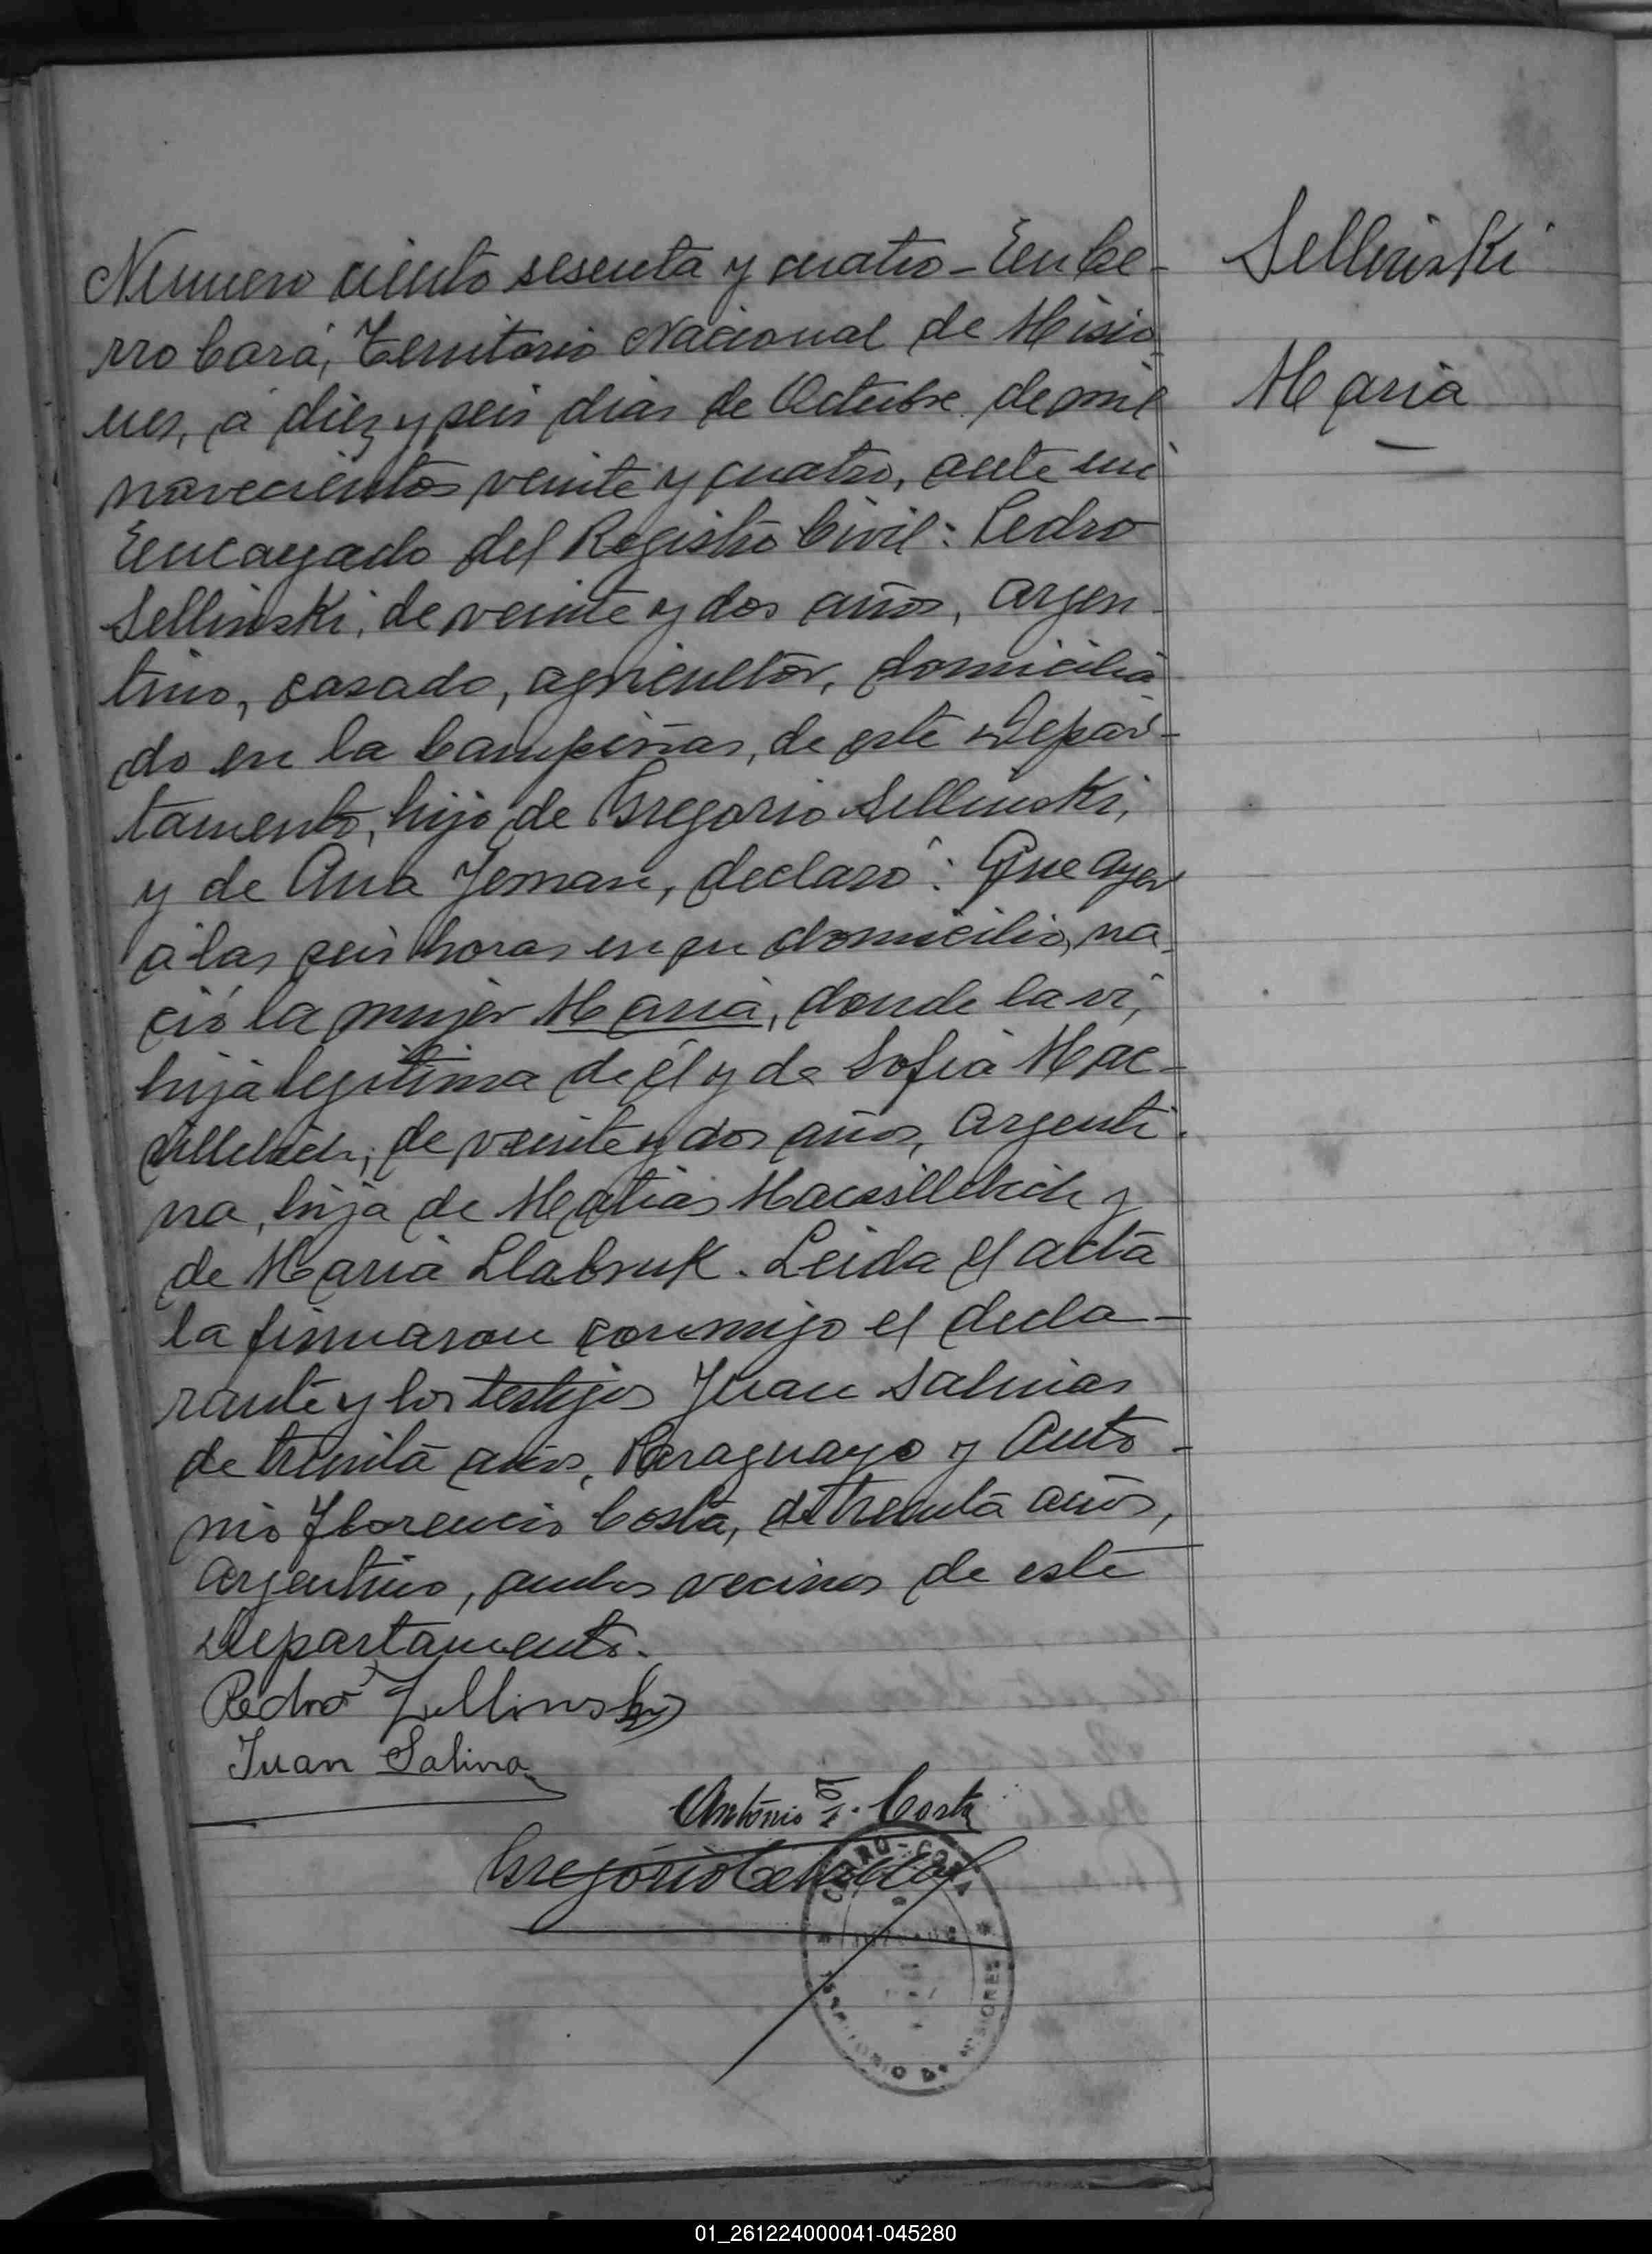 Sellinski
Maria
Numero ciento sesenta y cuatro - En Ce-
rro Corá, Territorio Nacional de Misio
nes, á diez y seis dias de Octubre de mil
novecientos veinte y cuatro, ante mi
Encargado del Registro Civil: Pedro
Sellinski, de veinte y dos años, argen
tino, casado, agricultor, domicilia
do en la Campiñas, de este Depar-
tamento, hijo de Gregorio Sellinski,
y de Ana Jeman, declaró: Que ayer
á las seis horas en su domicilio, na
ció la mujer Maria, donde la vi,
hija legitima de él y de Sofia Mac-
de veinte y dos años, argenti
na, hija de Matias y
de Maria Llabruk. Leida el acta
la firmaron conmigo el decla-
rante y los testigos Juan Salinas
de treinta años, Paraguayo y Anto-
nio Florencio Costa, de treinta años,
Argentino, ambos vecinos de este
Departamento.
Pedro Zellinsky
Juan Salina
Antonio F. Costa
Gregorio
CERRO-CORÁ
TERRITORIO DE MISIONES
01_261224000041-045280